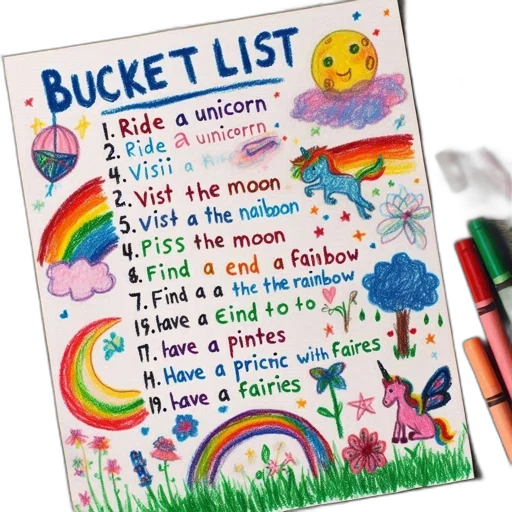 BUCKET LIST
1. Ride a unicorn
2. Ride a uinicorrn
4. Visii a
2. Vist the moon
5. Vist a the naiboon
4. Piss the moon
8. Find a end a fainbow
7. Find a a the the rainbow
19. have a Eind to to
17. have a pintes
H. Have a pricric with faires
19. have a fairies